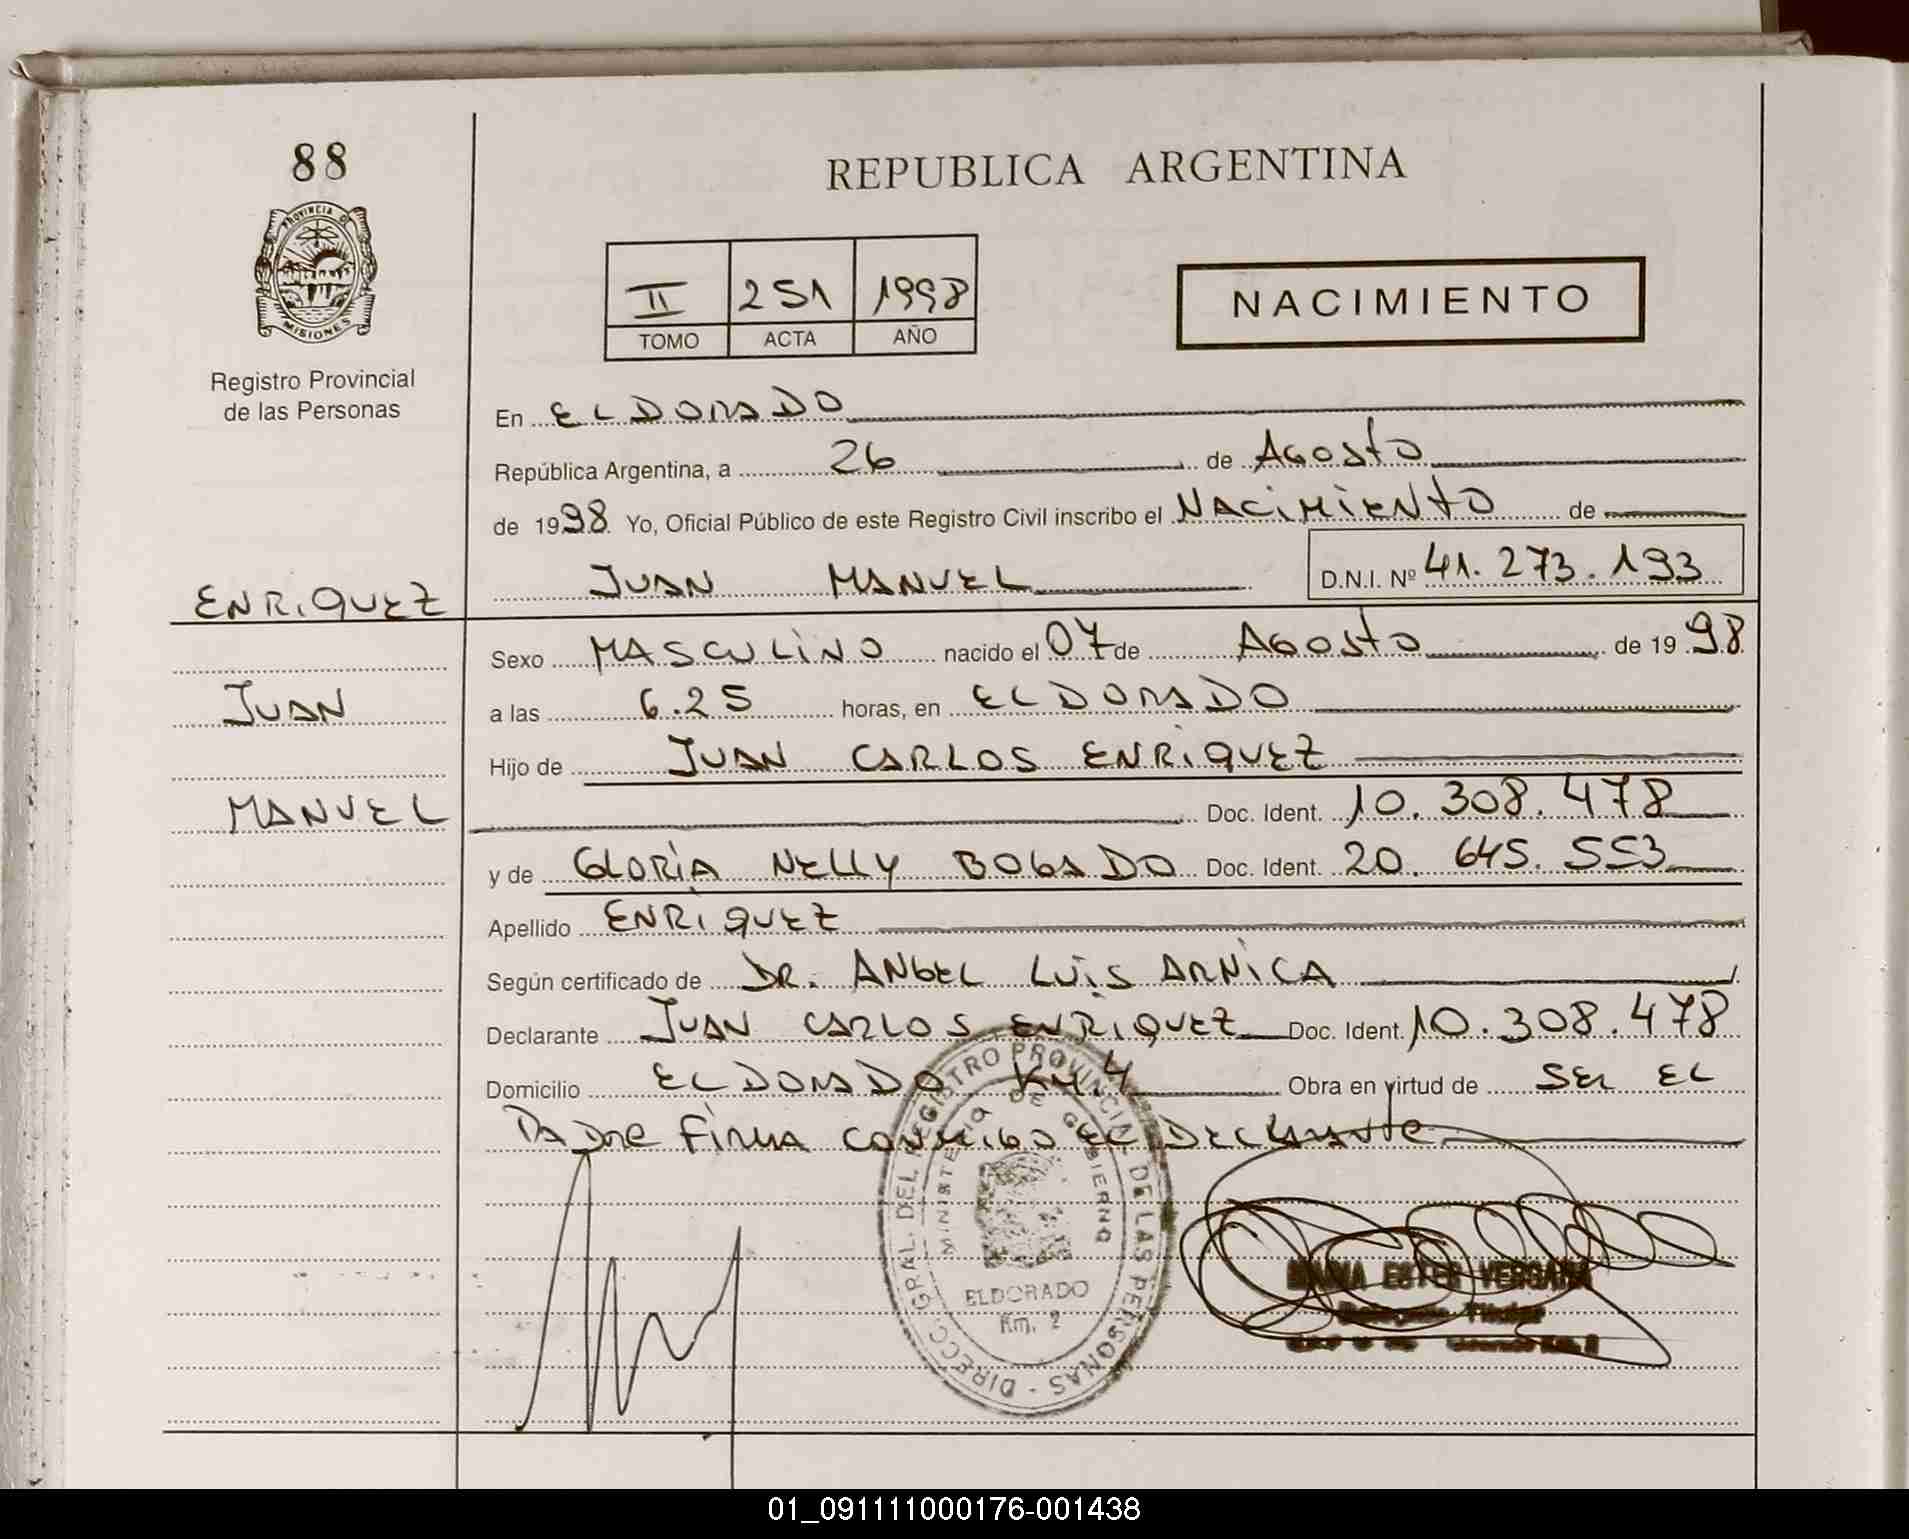 88
PROVINCIA DE
MISIONES
Registro Provincial
de las Personas
REPUBLICA ARGENTINA
II 251 1998
TOMO ACTA AÑO
NACIMIENTO
En ELDORADO
República Argentina, a 26 de AGOSTO
de 1998 Yo, Oficial Público de este Registro Civil inscribo el NACIMIENTO de
JUAN MANUEL D.N.I. Nº 41.273.193
ENRIQUEZ
JUAN
MANUEL
Sexo MASCULINO nacido el 07 de AGOSTO de 1998
a las 6.25 horas, en ELDORADO
Hijo de JUAN CARLOS ENRIQUEZ
Doc. Ident. 10.308.478
y de GLORIA NELLY BOGADO Doc. Ident. 20.645.553
Apellido ENRIQUEZ
Según certificado de DR. ANGEL LUIS ARNICA
Declarante JUAN CARLOS ENRIQUEZ Doc. Ident. 10.308.478
Domicilio ELDORADO KM.4 Obra en virtud de SER EL
PADRE FIRMA CONMIGO EL DECLARANTE
DIRECC. GRAL. DEL REGISTRO PROVINCIAL DE LAS PERSONAS
MINISTERIO DE GOBIERNO
ELDORADO
Km. 2
MARIA ESTER VERGARA
Titular
01_091111000176-001438